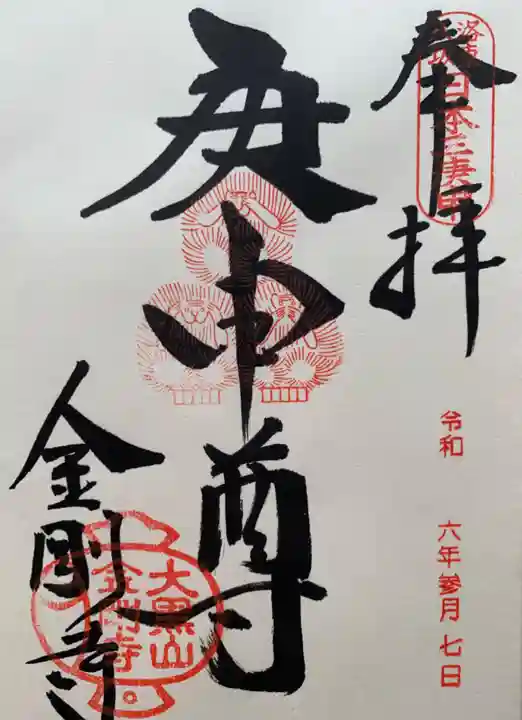 奉拝
洛東
日本三庚申
令和 六年参月七日
庚申尊
金剛寺
大黒山
金剛寺